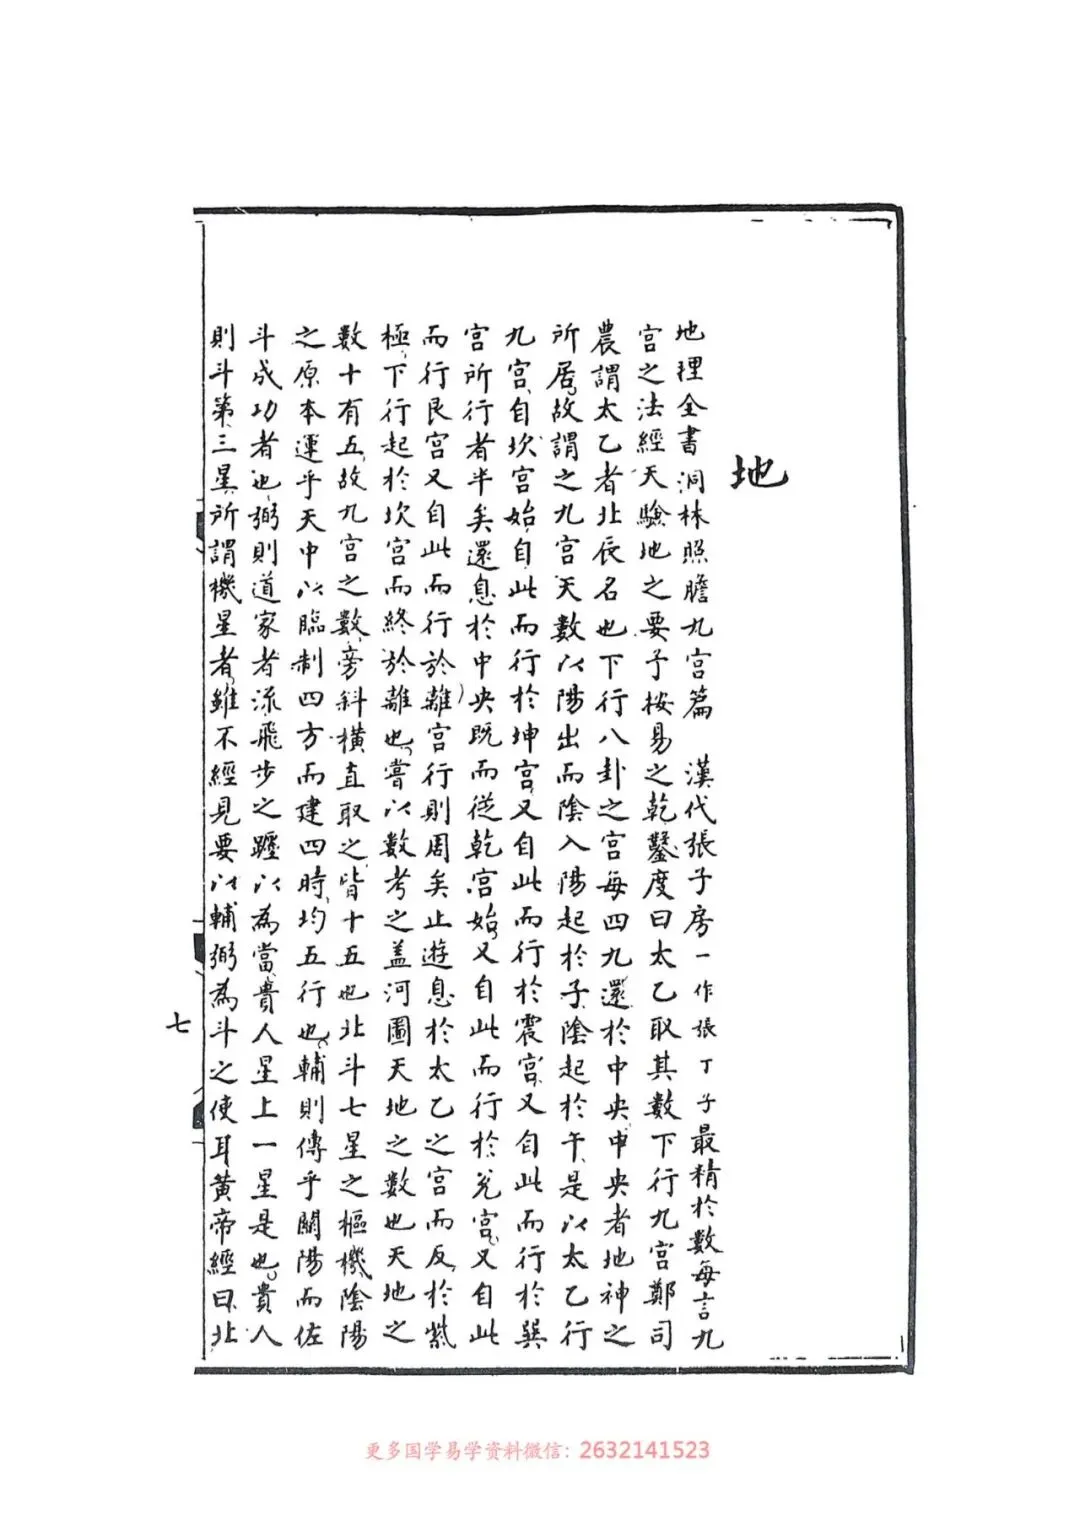 地
地理全書洞林照膽九宮篇　漢代張子房一作張丁子最精於數每言九
宮之法經天驗地之要予按易之乾鑿度曰太乙取其數下行九宮鄭司
農謂太乙者北辰名也下行八卦之宮每四九還於中央中央者地神之
所居故謂之九宮天數以陽出而陰入陽起於子陰起於午是以太乙行
九宮自坎宮始自此而行於坤宮又自此而行於震宮又自此而行於巽
宮所行者半矣還息於中央既而從乾宮始又自此而行於兌宮又自此
而行艮宮又自此而行於離宮行則周矣止遊息於太乙之宮而反於紫
極下行起於坎宮而終於離也嘗以數考之蓋河圖天地之數也天地之
數十有五故九宮之數旁斜橫直取之皆十五也北斗七星之樞機陰陽
之原本運乎天中以臨制四方而建四時均五行也輔則傳乎闓陽而佐
斗成功者也弼則道家者流飛步之躔以為當貴人星上一星是也貴人
則斗第三星所謂機星者雖不經見要以輔弼為斗之使耳黃帝經曰北
七
更多国学易学资料微信：2632141523